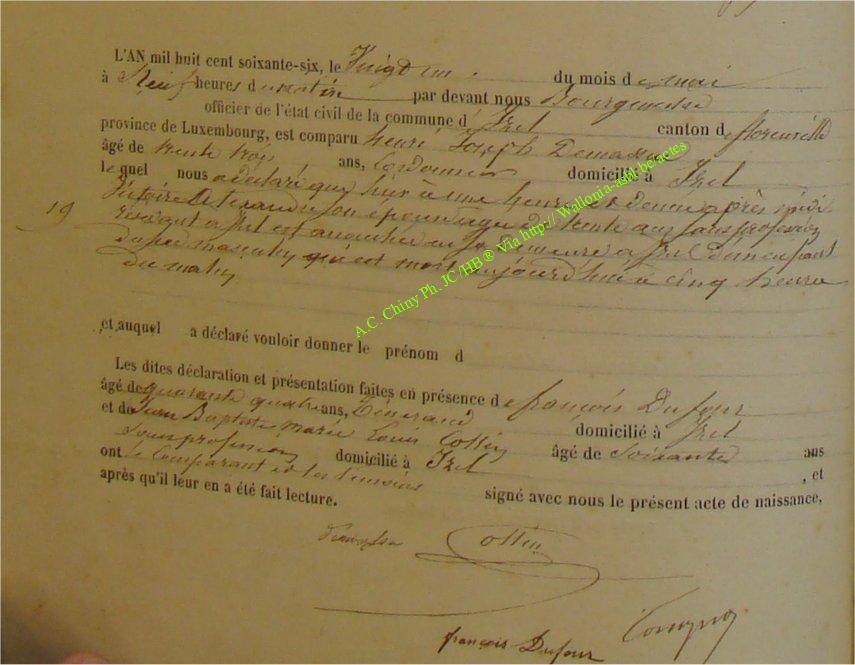 L'AN mil huit cent soixante-six, le Vingt un du mois de mai
à Neuf heures du matin par devant nous Bourgmestre
officier de l'état civil de la commune d'Izel canton de florenville
province de Luxembourg, est comparu henri Joseph
âgé de trente trois ans, Cordonnier domicilié à Izel
lequel nous a déclaré que hier à une heure et demie après midi
Victoire son épouse agée de trente ans sans profession
à Izel est accouchée en sa demeure a Izel d'un enfant
du sexe masculin qui est mort aujourd'hui à cinq heures
du matin
19
et auquel a déclaré vouloir donner le prénom d
Les dites déclaration et présentation faites en présence de françois Dufour
âgé de quarante quatre ans, domicilié à Izel
et de Jean Baptiste Marie Louis Collin âgé de soixante ans
sans profession domicilié à Izel, et
ont le comparant et les temoins signé avec nous le présent acte de naissance,
après qu'il leur en a été fait lecture.
Collin
françois Dufour
A.C. Chiny Ph. JC/HB ® Via http:// Wallonia-asbl.be/actes